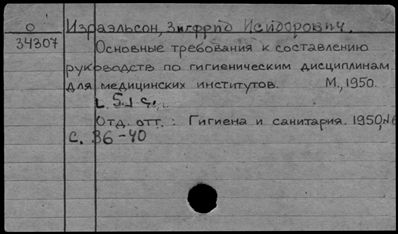 О Израэльсон, Зигфрид Исидорович.
34307
Основные требования к составлению
руководств по гигиеническим дисциплинам
для медицинских институтов. М., 1950.
Отд. отт.: Гигиена и санитария. 1950, №6
С. 36-40